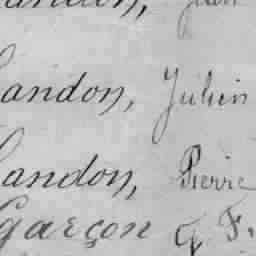 andon, Jean
Landon, Julien
Landon, Pierre
Garçon q F.